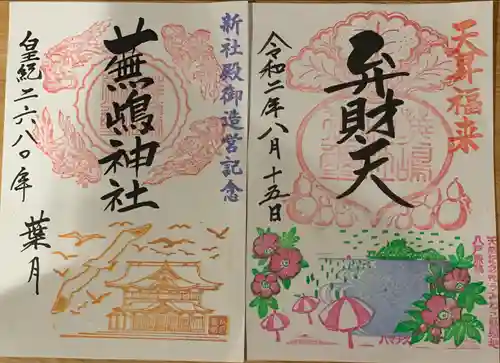 天耳福来
弁財天
令和二年八月十五日
新社殿御造営記念
蕪嶋神社
皇紀二六八〇年
葉月